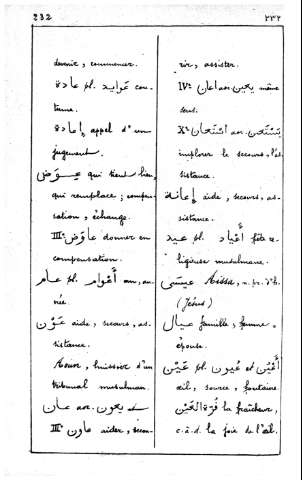 232 ٢٣٢
devenir, commencer.
عادة pl. عوايد cou-
tume.
إعادة appel d'un
jugement.
عِوَض qui tient lieu,
qui remplace; compen-
sation, échange.
IIIe عاوَض donner en
compensation.
عام pl. أعْوام an, an-
née.
عَوْن aide, secours, as-
sistance.
Aoun, huissier d'un
tribunal musulman.
عان aor. يعون et
IIIe عاون aider, secou-
rir, assister.
IVe أعان aor. يعين même
sens.
Xe اسْتَعان aor. يَسْتَعين
implorer le secours, l'as-
sistance.
إعانة aide, secours, as-
sistance.
عيد pl. أعْياد fête re-
ligieuse musulmane.
عيسَى Aïssa, n. pr. d'h.
(Jésus)
عيال famille, femme,
épouse.
عَيْن pl. عُيون et أعْيُن
œil, source, fontaine
قُرّة العَيْن la fraîcheur,
c.à.d. la joie de l'œil.